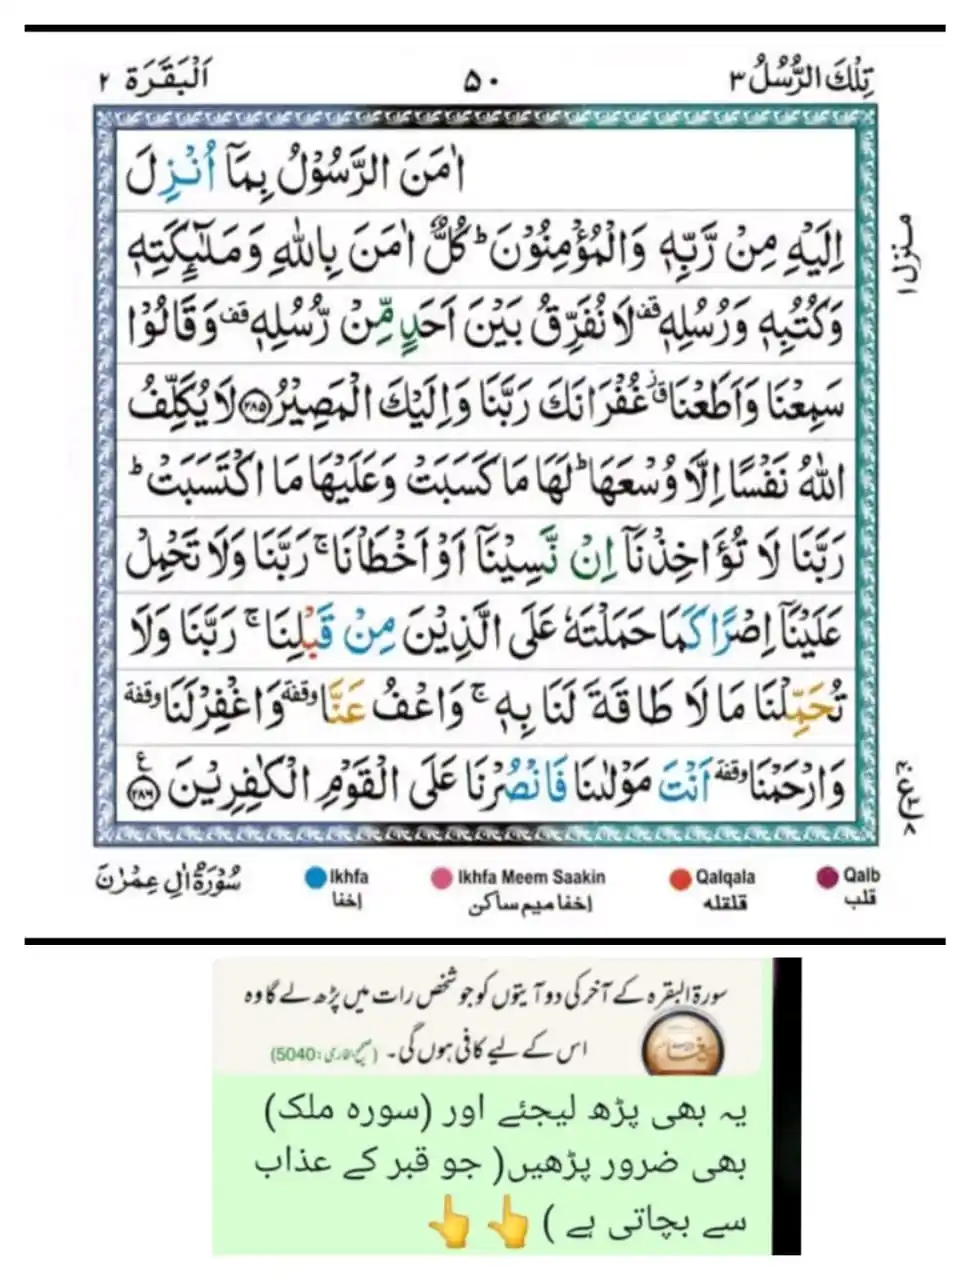 تِلْكَ الرُّسُلُ ٣
٥٠
اَلْبَقَرَة ٢
اٰمَنَ الرَّسُوْلُ بِمَاۤ اُنْزِلَ
اِلَيْهِ مِنْ رَّبِّهٖ وَالْمُؤْمِنُوْنَ ؕ كُلٌّ اٰمَنَ بِاللّٰهِ وَمَلٰٓئِكَتِهٖ
وَكُتُبِهٖ وَرُسُلِهٖ قف لَا نُفَرِّقُ بَيْنَ اَحَدٍ مِّنْ رُّسُلِهٖ قف وَقَالُوْا
سَمِعْنَا وَاَطَعْنَا ق ز غُفْرَانَكَ رَبَّنَا وَاِلَيْكَ الْمَصِيْرُ ٢٨٥ لَا يُكَلِّفُ
اللّٰهُ نَفْسًا اِلَّا وُسْعَهَا ؕ لَهَا مَا كَسَبَتْ وَعَلَيْهَا مَا اكْتَسَبَتْ ؕ
رَبَّنَا لَا تُؤَاخِذْنَاۤ اِنْ نَّسِيْنَاۤ اَوْ اَخْطَاْنَا ۚ رَبَّنَا وَلَا تَحْمِلْ
عَلَيْنَاۤ اِصْرًا كَمَا حَمَلْتَهٗ عَلَى الَّذِيْنَ مِنْ قَبْلِنَا ۚ رَبَّنَا وَلَا
تُحَمِّلْنَا مَا لَا طَاقَةَ لَنَا بِهٖ ۚ وَاعْفُ عَنَّا وقفة وَاغْفِرْ لَنَا وقفة
وَارْحَمْنَا وقفة اَنْتَ مَوْلٰىنَا فَانْصُرْنَا عَلَى الْقَوْمِ الْكٰفِرِيْنَ ع ٢٨٦
منزل ١
Ikhfa
Ikhfa Meem Saakin
Qalqala
Qalb
اخفا
اخفا میم ساکن
قلقله
قلب
سُوْرَةُ اٰلِ عِمْرٰنَ
سورۃ البقرہ کے آخر کی دو آیتوں کو جو شخص رات میں پڑھ لے گا وہ
اس کے لیے کافی ہوں گی۔ (صحیح بخاری: 5040)
یہ بھی پڑھ لیجئے اور (سورہ ملک)
بھی ضرور پڑھیں( جو قبر کے عذاب
سے بچاتی ہے ) 👆👆